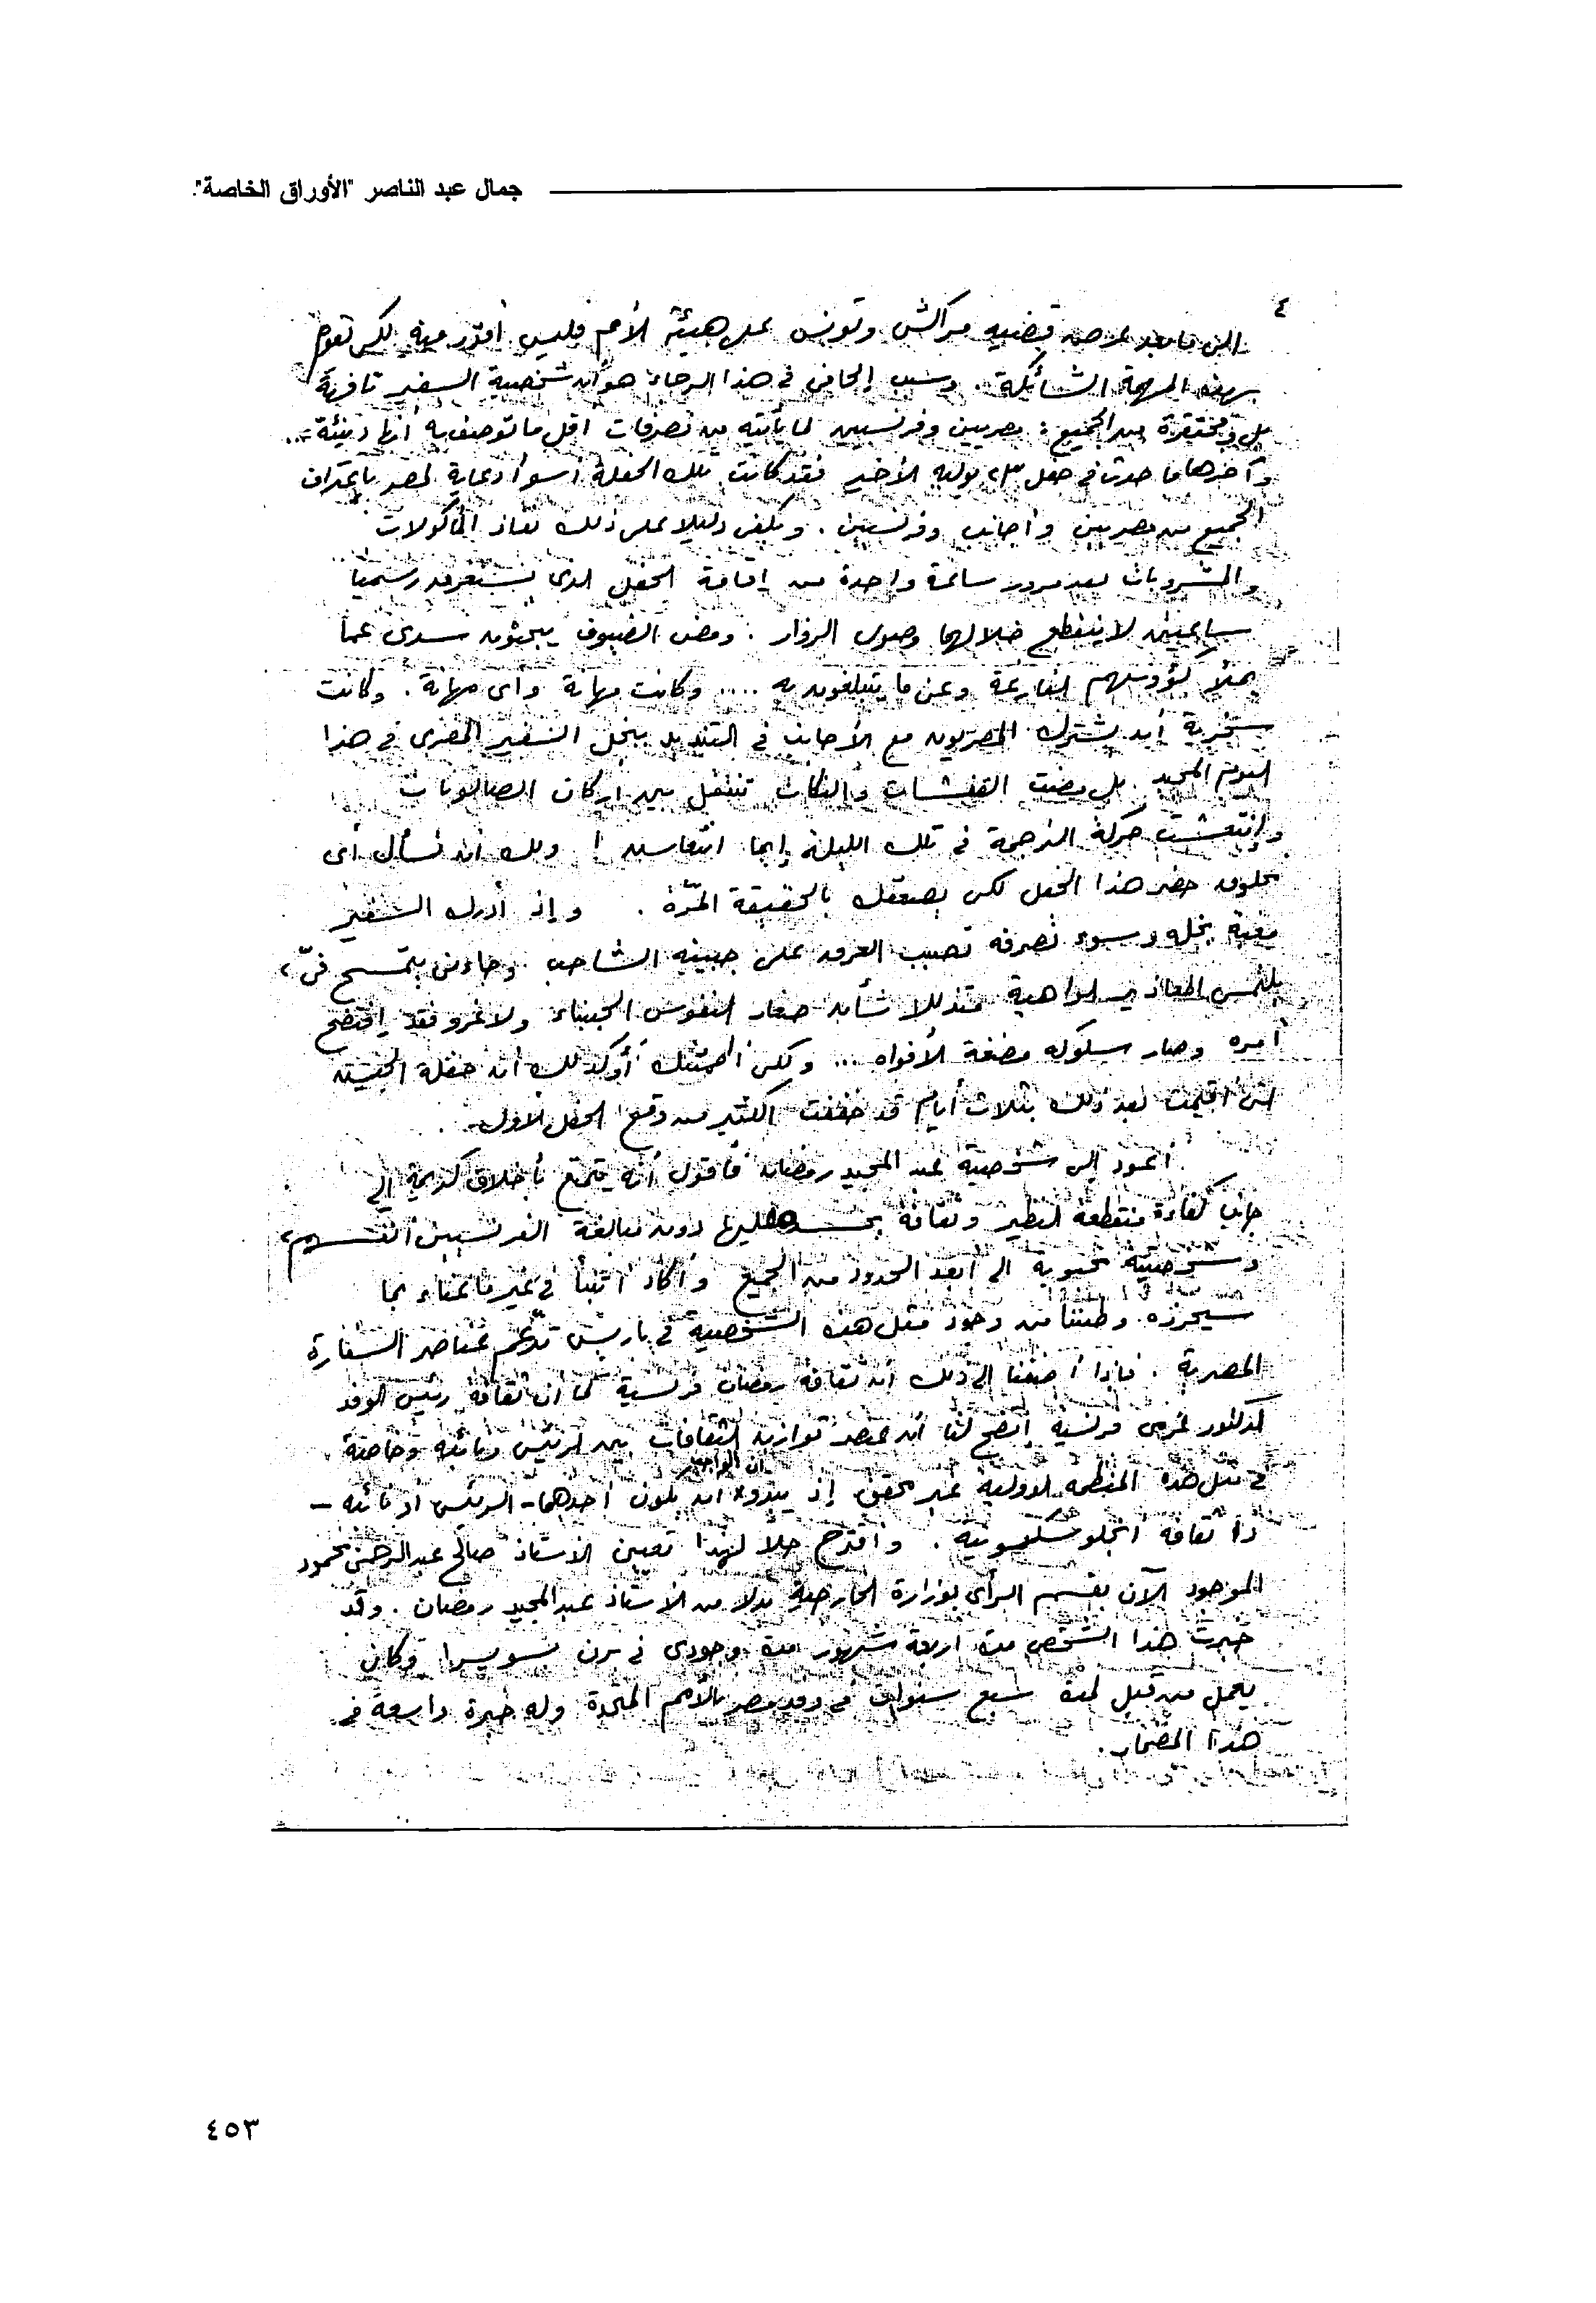 جمال عبد الناصر "الأوراق الخاصة".
٤
إلى ما بعد عرض قضيه مراكش وتونس على هيئة الأمم فليس أقدر منه لكى تقوم
بهذه المهمة الشائكة . وسبب إلحافى فى هذا الرجاء هو أن شخصية السفير تافهة
بل ومحتقرة من الجميع : مصريين وفرنسيين لما يأتيه من تصرفات اقل ما توصف به أنها دنيئة ...
وآخرها ما حدث فى حفل ٢٣ يوليه الأخير فقد كانت تلك الحفلة أسوأ دعاية لمصر باعتراف
الجميع من مصريين وأجانب وفرنسيين . ويكفى دليلا على ذلك نفاذ المأكولات
والمشروبات بعد مرور ساعة واحدة من إقامة الحفل الذى يستغرق رسميا
ساعتين لا ينقطع خلالهما وصول الزوار . ومضى الضيوف يبحثون سدى عما
يملأ كؤوسهم الفارغة وعن ما يتبلغون به .... وكانت مهانة وأى مهانة . وكانت
سخرية أن يشترك المصريون مع الأجانب فى التنديد ببخل السفير المصرى فى هذا
اليوم المجيد . بل مضت القفشات والنكات تنتقل بين اركان الصالونات
وانتعشت حركة الترجمة فى تلك الليلة إيما انتعاش ! ولك أن تسأل أى
مخلوق حضر هذا الحفل لكى يصعقك بالحقيقة المرّة . وإذ أدرك السفير
مغبة بخله وسوء تصرفه تصبب العرق على جبينه الشاحب وجاءنى يتمسح فىّ،
يلتمس المعاذير الواهية متذللا شأن صغار النفوس الجبناء ولا غرو فقد إفتضح
أمره وصار سلوكه مضغة الأفواه ... ولكى أطمئنك أؤكد لك أن حفلة الجيش
التى أقيمت بعد ذلك بثلاث أيام قد خففت الكثير من وقع الحفل الأول .
أعود إلى شخصية عبد المجيد رمضان فأقول أنه يتمتع بأخلاق كريمة إلى
جانب كفاءة منقطعة النظير وثقافة يحسده عليها دون مبالغة الفرنسيين أنفسهم،
وشخصيته محبوبة الى أبعد الحدود من الجميع وأكاد أتنبأ فى غير ما عناء بما
سيحرزه وطننا من وجود مثل هذه الشخصية فى باريس تدعّم عناصر السفارة
المصرية . فإذا أضفنا الى ذلك أن ثقافة رمضان فرنسية كما أن ثقافة رئيس الوفد
الدكتور عزمى فرنسية إتضح لنا أن عنصر توازن الثقافات بين الرئيس ونائبه وخاصة
فى مثل هذه المنظمه الدولية غير محقق إذ يبدو أن الواجب أن يكون أحدهما - الرئيس او نائبه -
ذا ثقافة أنجلوسكسونية . وأقترح حلا لهذا تعيين الأستاذ صالح عبد الرحمن محمود
الموجود الآن بقسم الرأى بوزارة الخارجية بدلا من الأستاذ عبد المجيد رمضان . وقد
خبرت هذا الشخص مدة اربعة شهور مدة وجودى فى برن سويسرا وكان
يعمل من قبل لمدة سبع سنوات فى وفد مصر بالأمم المتحدة وله خبرة واسعة فى
هذا المضمار .
٤٥٣